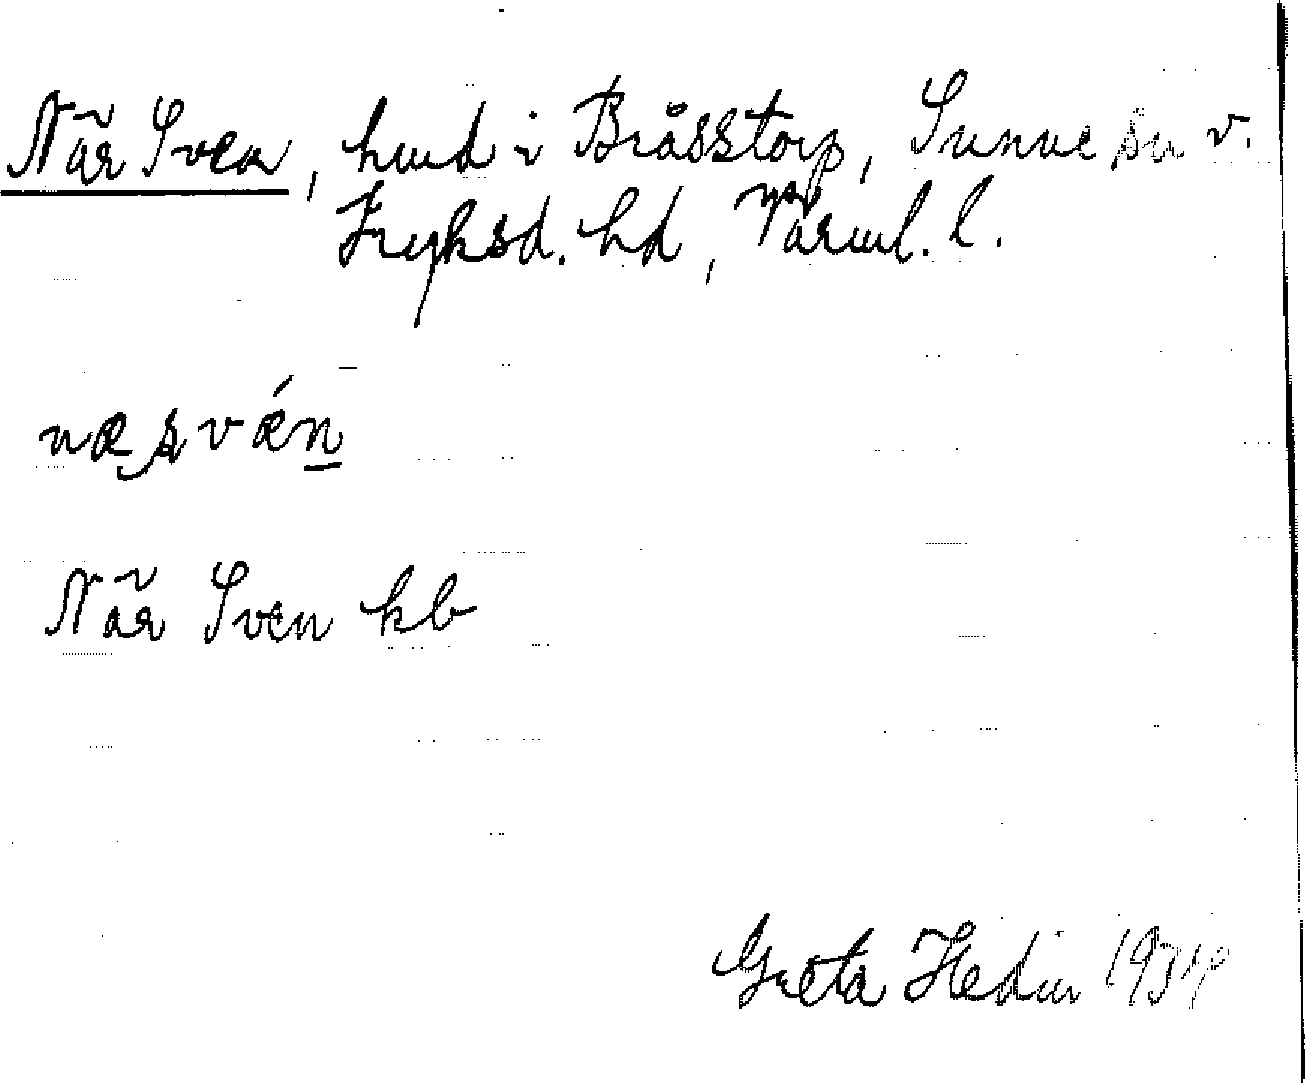 När Sven, hmd i Bråsstorp, Sunne sn v.
Fryksd. hd, Värml. l.
næʂvǽn
När Sven kb
Greta Hedin 1934